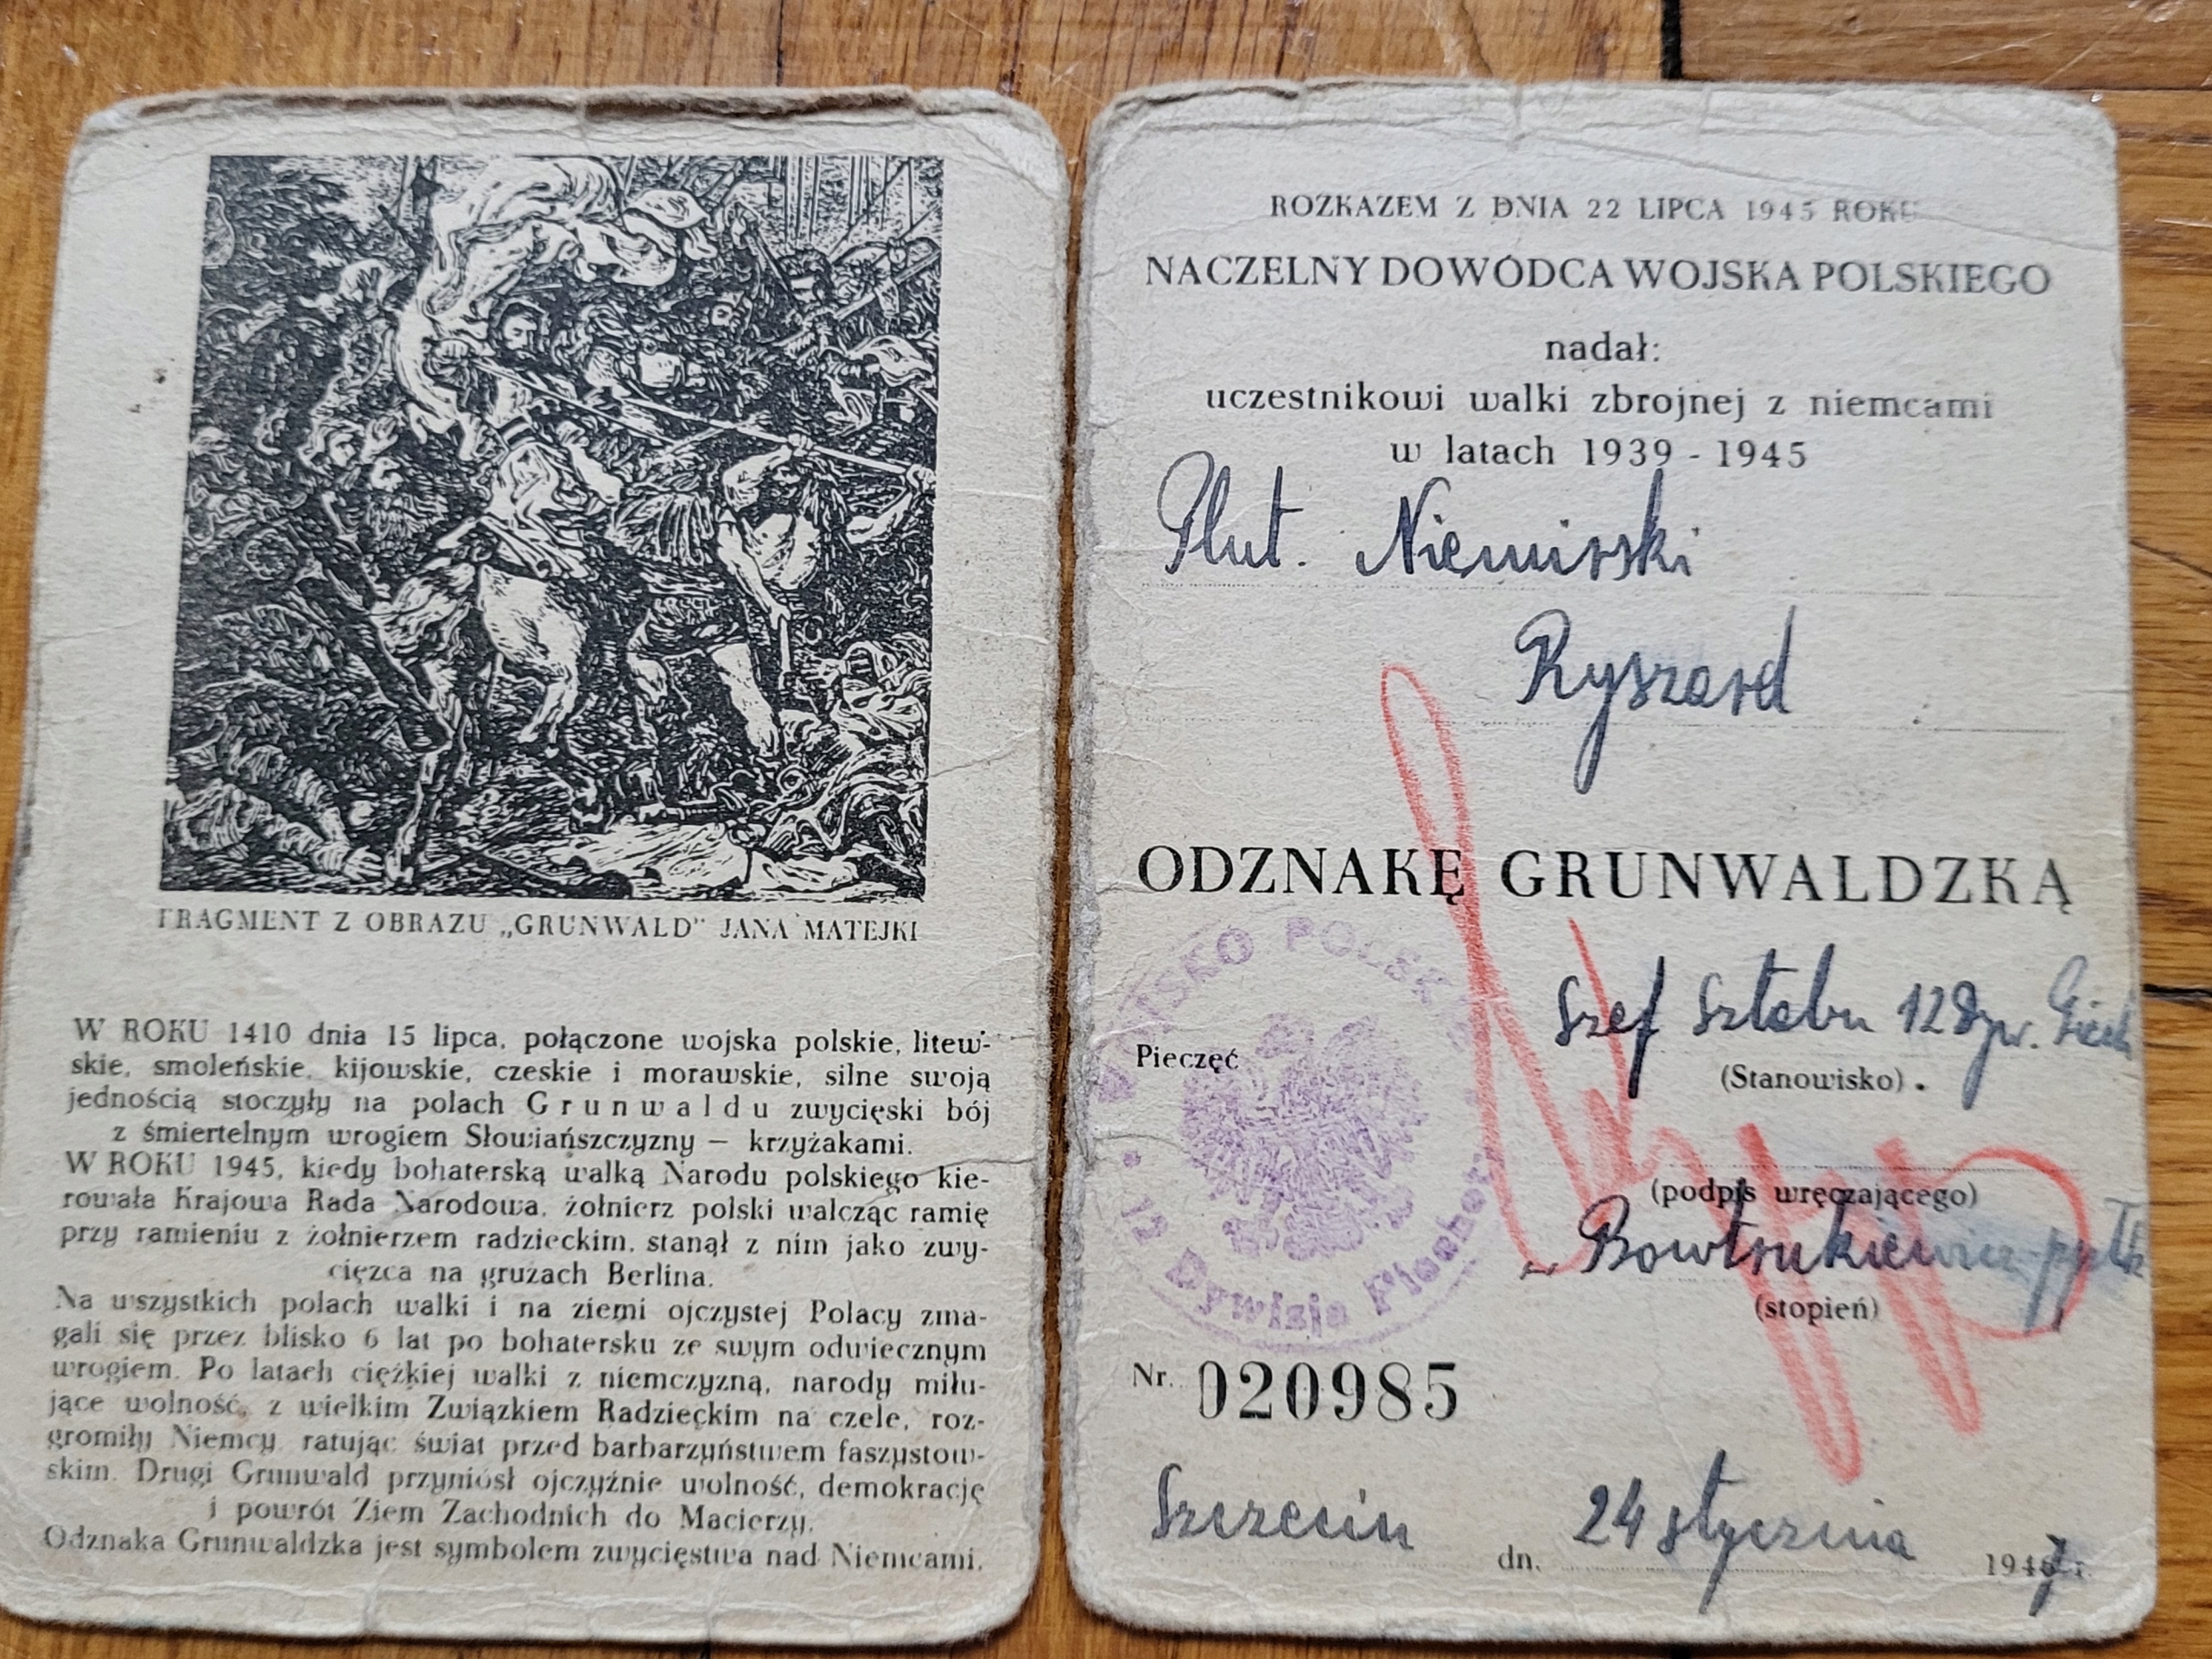 FRAGMENT Z OBRAZU „GRUNWALD" JANA MATEJKI
W ROKU 1410 dnia 15 lipca, połączone wojska polskie, litew-
skie, smoleńskie, kijowskie, czeskie i morawskie, silne swoją
jednością stoczyły na polach Grunwaldu zwycięski bój
z śmiertelnym wrogiem Słowiańszczyzny — krzyżakami.
W ROKU 1945, kiedy bohaterską walką Narodu polskiego kie-
rowała Krajowa Rada Narodowa, żołnierz polski walcząc ramię
przy ramieniu z żołnierzem radzieckim, stanął z nim jako zwy-
cięzca na gruzach Berlina.
Na wszystkich polach walki i na ziemi ojczystej Polacy zma-
gali się przez blisko 6 lat po bohatersku ze swym odwiecznym
wrogiem. Po latach ciężkiej walki z niemczyzną, narody miłu-
jące wolność, z wielkim Związkiem Radzieckim na czele, roz-
gromiły Niemcy, ratując świat przed barbarzyństwem faszystow-
skim. Drugi Grunwald przyniósł ojczyźnie wolność, demokrację
i powrót Ziem Zachodnich do Macierzy.
Odznaka Grunwaldzka jest symbolem zwycięstwa nad Niemcami.
ROZKAZEM Z DNIA 22 LIPCA 1945 ROKU
NACZELNY DOWÓDCA WOJSKA POLSKIEGO
nadał:
uczestnikowi walki zbrojnej z niemcami
w latach 1939 - 1945
Plut. Niemirski
Ryszard
ODZNAKĘ GRUNWALDZKĄ
WOJSKO POLSKIE
Szef Sztabu 12 Dyw. Piech
Pieczęć
(Stanowisko)
12 Dywizja Piechoty
(podpis wręczającego)
ppłk
(stopień)
Nr. 020985
Szczecin dn. 24 stycznia 1947 r.